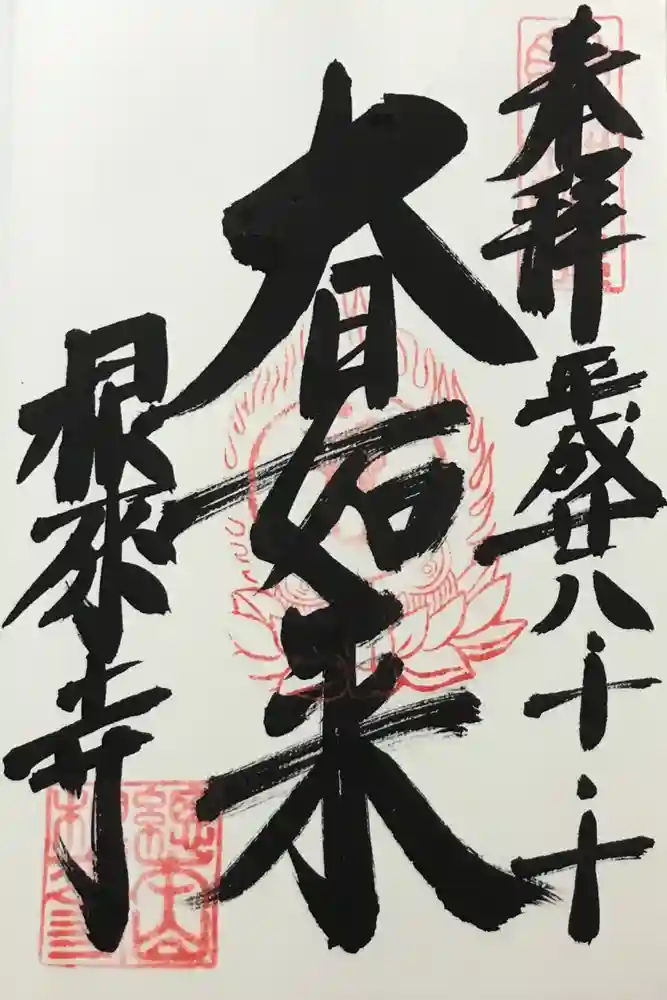 奉拝
平成廿八・十・十
大日如来
根來寺